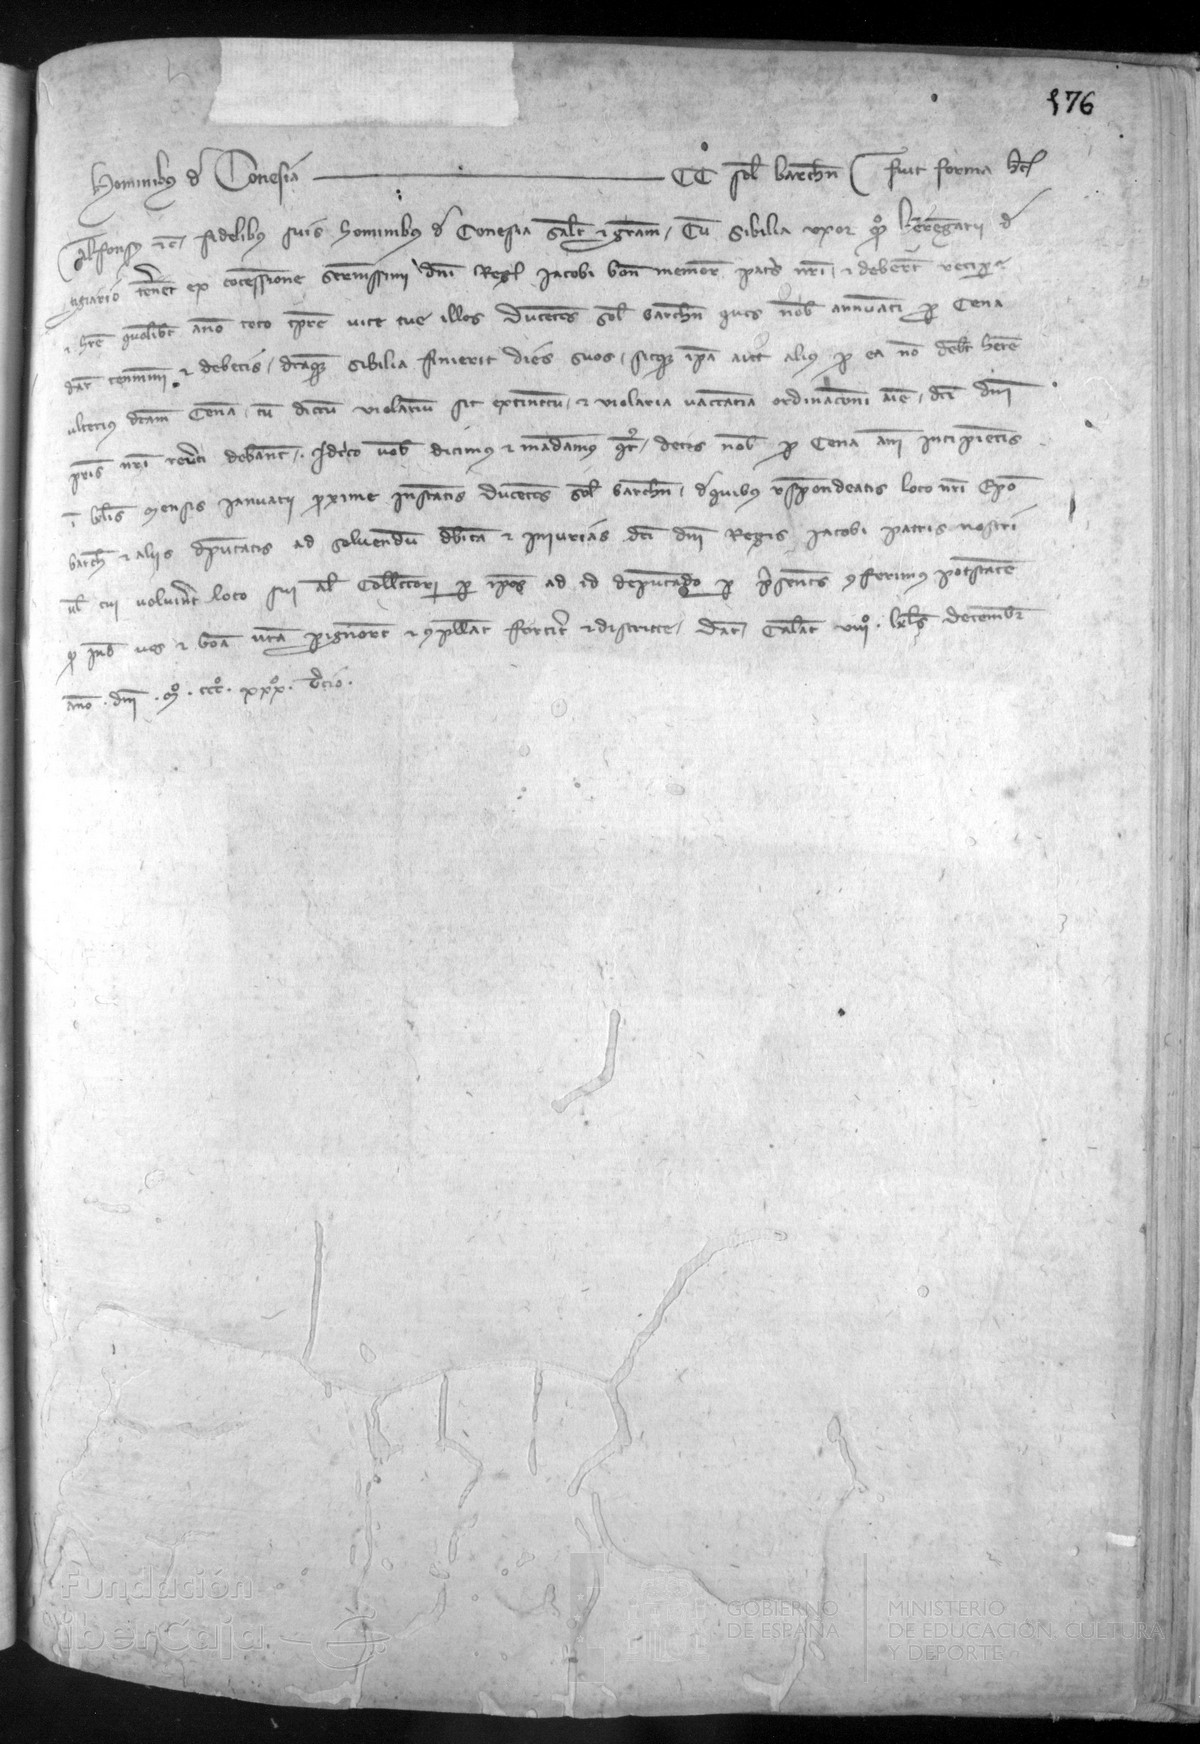 176
Hominibus d Conesia CC sol barchn fuit forma hec
Alfonsus etc fidelibus suis hominibus d Conesia salt et gram Cu Sibilia uxor qo Berengarii d
teneret ex concessione serenissimi dni Regis Jacobi bon memor patris nri et deberet recipe
et here quolibet ano toto tpre vite sue illos Ducentos sol barchn quos nob annuati pro Cena
dar tenemini et debetis dcaque Sibilia finierit dies suos sicque ipa aut alius p ea no debet here
ulterius dcam Cena cu dictu violariu sit extinctu et violaria vaccancia ordinacioni aie dci dni
pris nri debeant Idcirco vob dicimus et mandamus qt detis nob pro Cena ani incipientis
i klis mensis januarii proxime instantis Ducentos sol barchn d quibus respondeatis loco nri Epo
barch et aliis deputatis ad solvendu debita et injurias dci dni Regis Jacobi patris nostri
vl cui voluerit loco sui al Collectori p ipos ad id deputado p psentes conferimus potestate
qd inde vos et bona vra pignoret et compellat fortiter et districte Dat viiiº kls decembr
ano dni mº cccº xxxº tercio
Fundación
iberCaja
GOBIERNO
DE ESPAÑA
MINISTERIO
DE EDUCACIÓN, CULTURA
Y DEPORTE